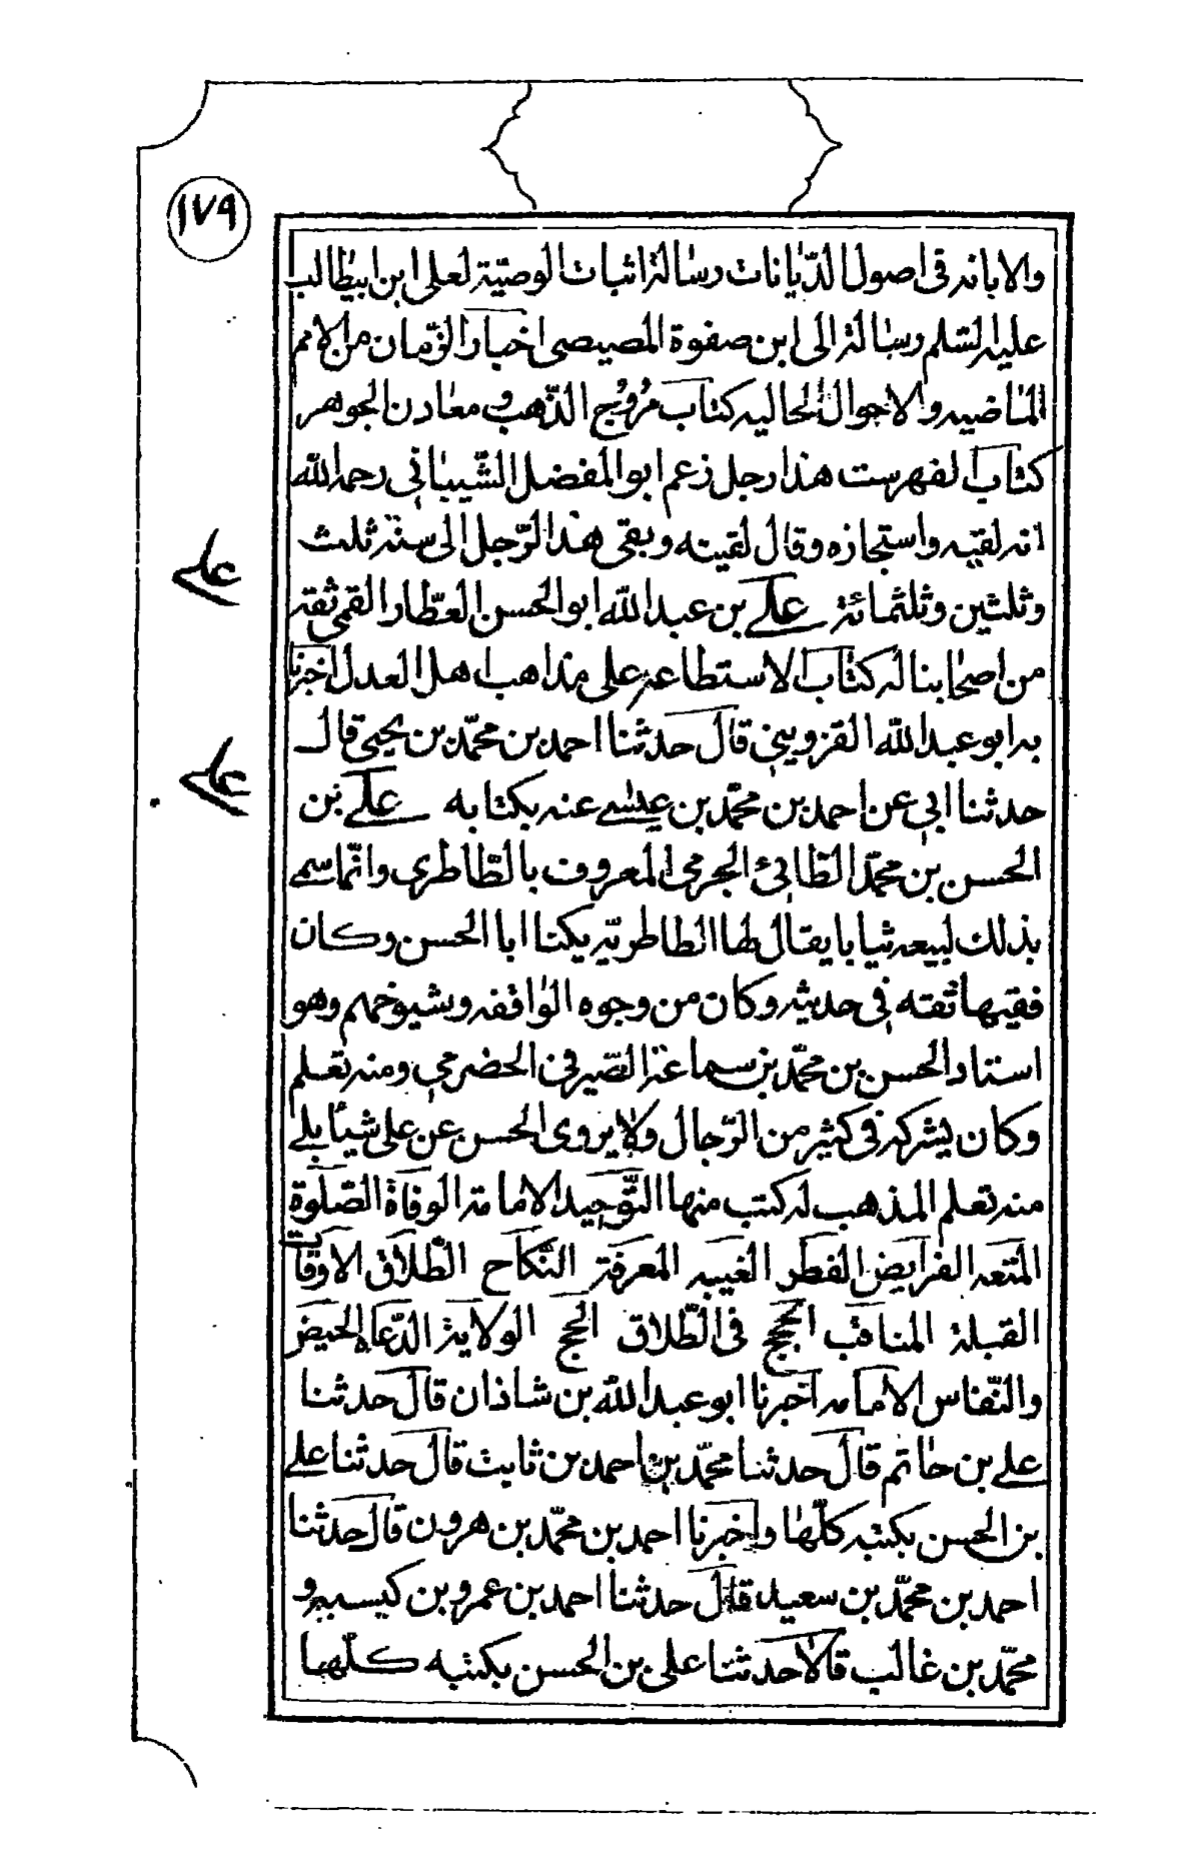 ١٧٩
والابانه فى اصول الدّيٰانات رسٰالة اثبات الوصيّة لعلى ابن ابيطٰالب
عليه السّلم رسٰالة الى ابن صفوة المصيصى اخبار الزّمان من الامم
المٰاضيه والاحوال الحاليه كتاب مُرُوج الذّهب و معٰادن الجوهر
كتٰاب الفهرست هذا رجل زعم ابو المفضل الشّيبٰانى رحمه الله
انه لقيه واستجازه وقال لقيته وبقى هذا الرّجل الى سنة ثلث
وثلثين وثلثمائة على بن عبد الله ابو الحسن العطّار القمى ثقة
من اصحٰابنا له كتٰاب الاستطاعة على مذاهب اهل العدل اخبرنا
به ابو عبد الله القزوينى قال حدثنا احمد بن محمّد بن يحيى قال
حدثنا ابى عن احمد بن محمّد بن عيسٰى عنه بكتابه على بن
الحسن بن محمّد الطّائى الجرمى المعروف بالطّاطرى وانّما سمى
بذلك لبيعه ثيابا يقال لها الطاطريّه يكنا ابا الحسن وكان
فقيها ثقته فى حديثه وكان من وجوه الوٰاقفه وشيوخهم وهو
استاد الحسن بن محمّد بن سماعة الصّيرفى الحضرمى ومنه تعلم
وكان يشركه فى كثير من الرّجال ولا يروى الحسن عن على شيئا بلى
منه تعلم المذهب له كتب منها التّوحيد الامامة الوفاة الصّلوة
المتعه الفرايض الفطر الغيبه المعرفة النّكاح الطّلاق الاوقات
القبلة المناقب الحجج فى الطّلاق الحج الولاية الدّعاء الحيض
والنّفاس الامامه اخبرنا ابو عبد الله بن شاذان قال حدثنا
على بن حٰاتم قال حدثنا محمّد بن احمد بن ثابت قال حدثنا على
بن الحسن بكتبه كلّهٰا واخبرنا احمد بن محمّد بن هرون قال حدثنا
احمد بن محمّد بن سعيد قال حدثنا احمد بن عمرو بن كيسبه و
محمّد بن غالب قالا حدثنا على بن الحسن بكتبه كلّهٰا
على
على